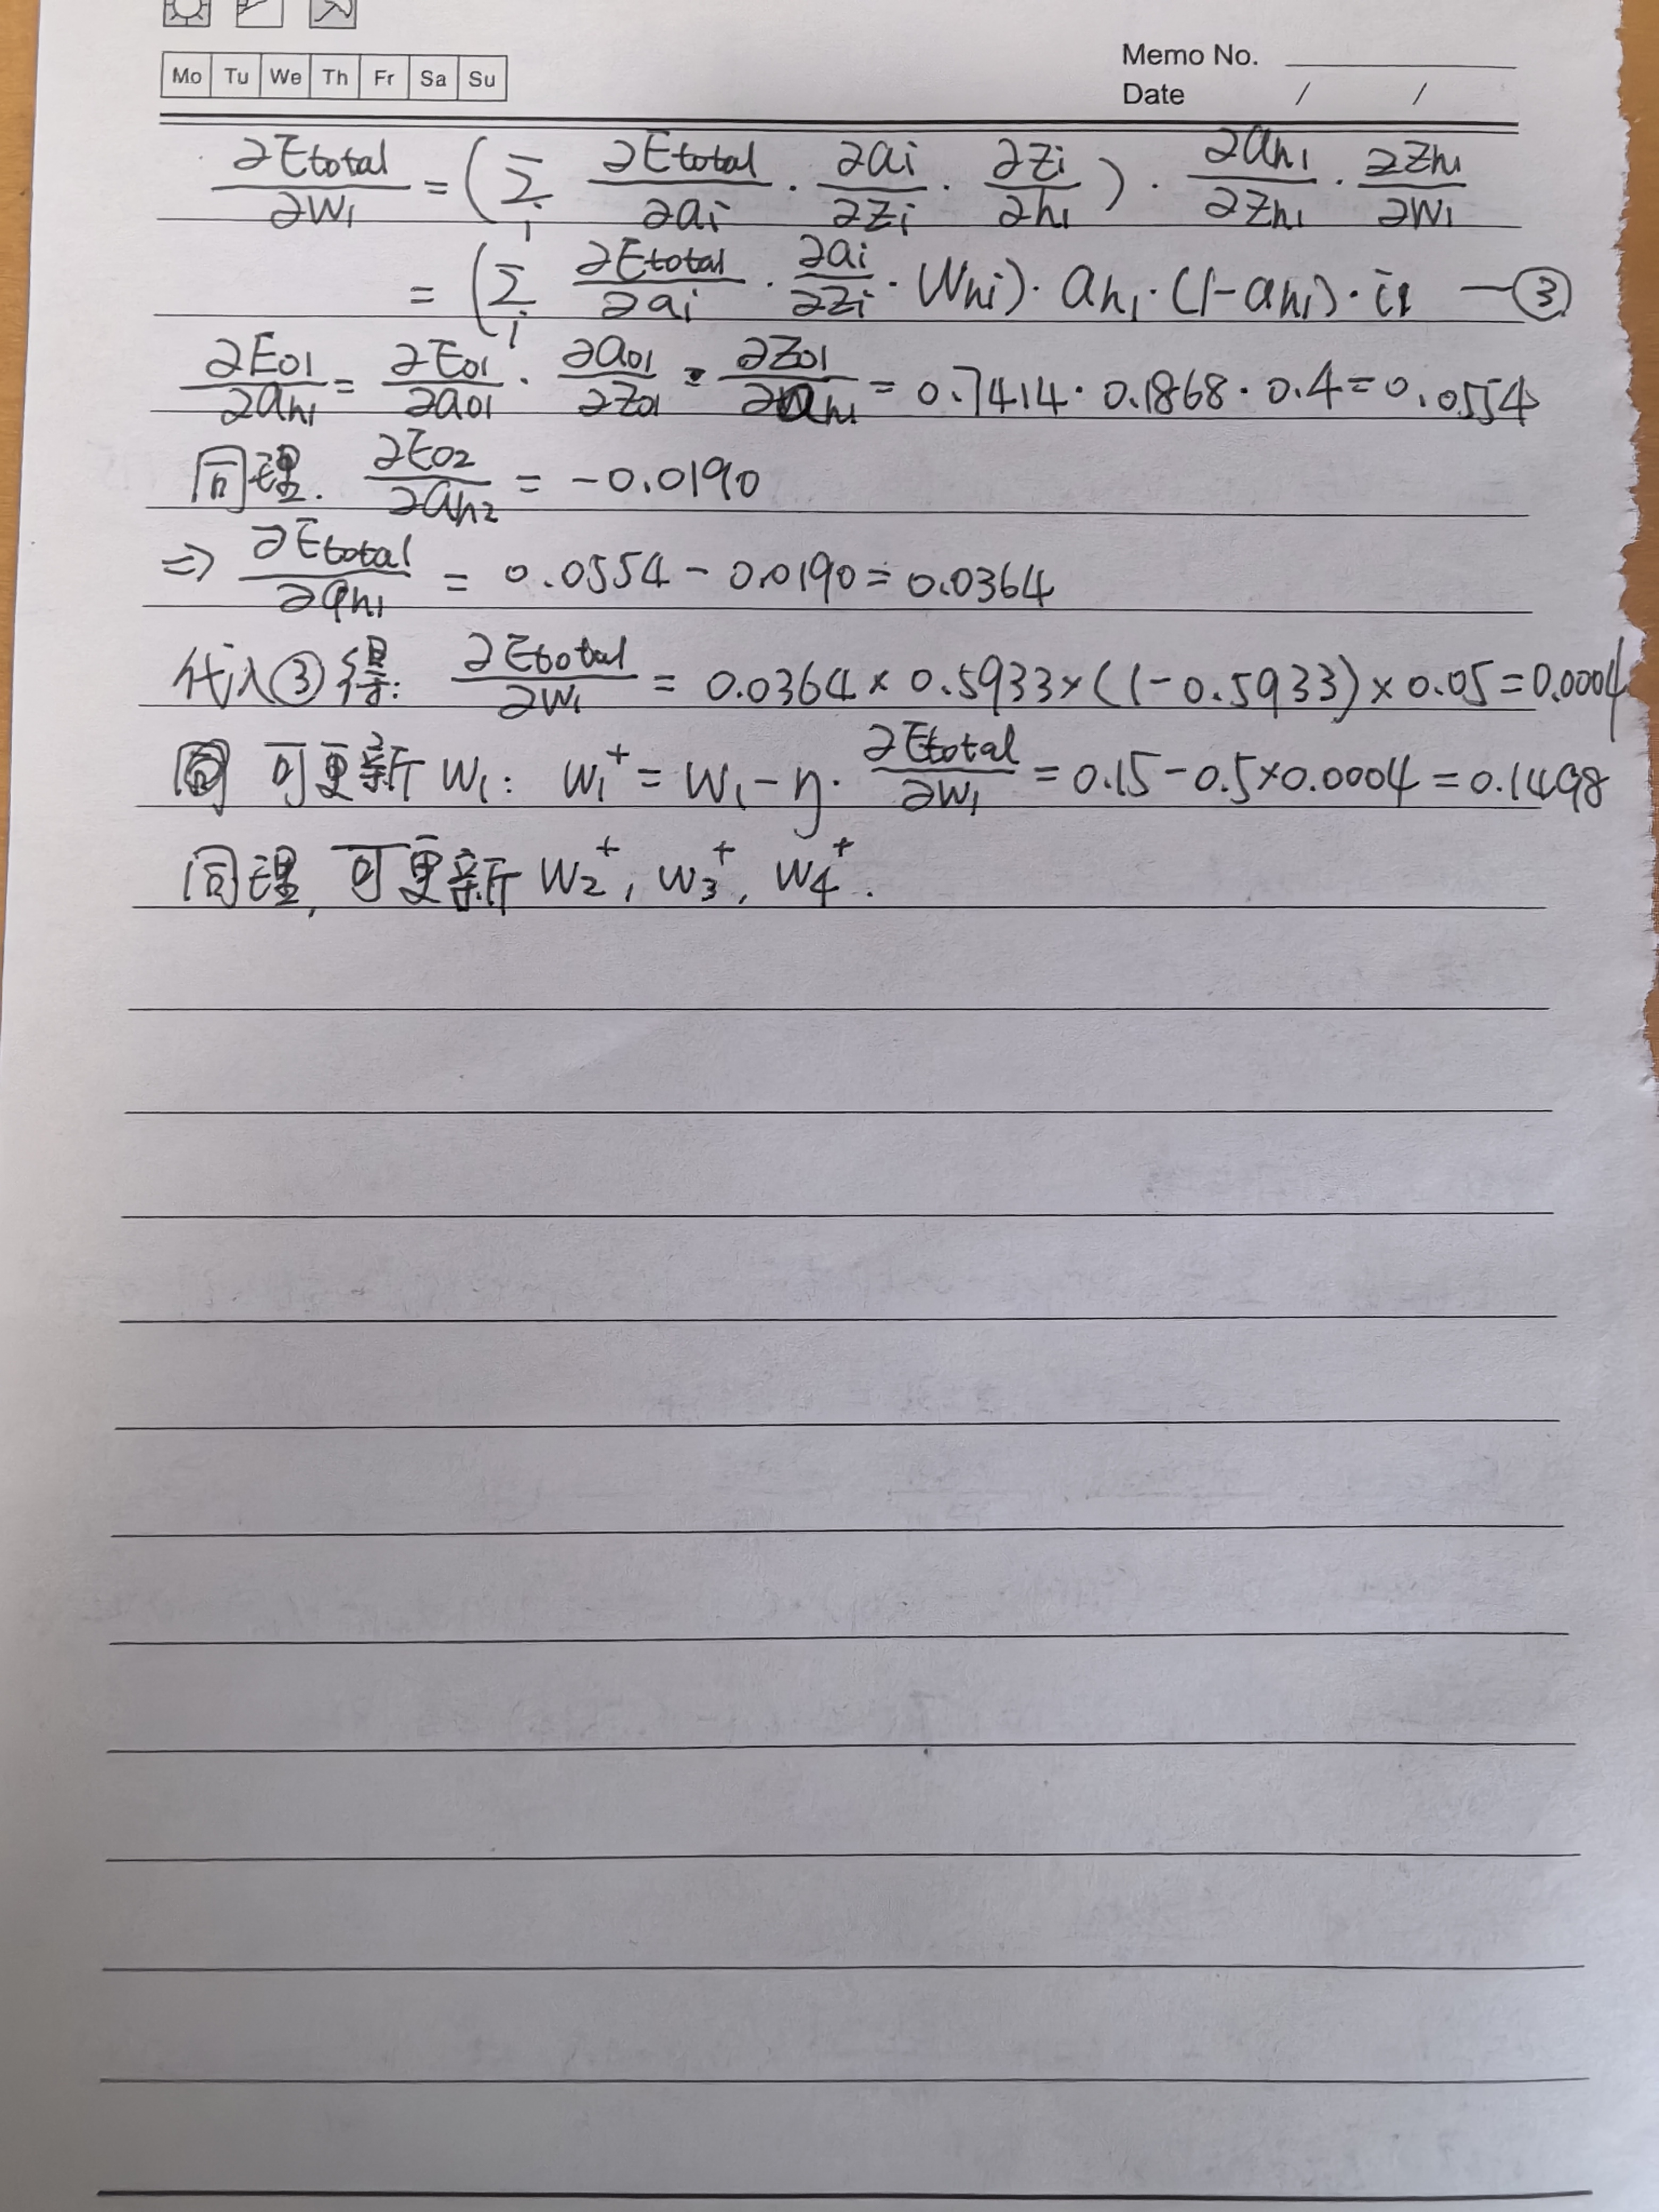 Mo Tu We Th Fr Sa Su
Memo No.
Date / /
∂Etotal/∂w₁ = (Σᵢ ∂Etotal/∂aᵢ · ∂aᵢ/∂zᵢ · ∂zᵢ/∂h₁) · ∂ah₁/∂zh₁ · ∂zh₁/∂w₁
= (Σᵢ ∂Etotal/∂aᵢ · ∂aᵢ/∂zᵢ · Whi) · ah₁ · (1-ah₁) · i₁ —③
∂E01/∂ah₁ = ∂E01/∂a01 · ∂a01/∂z01 · ∂z01/∂ah₁ = 0.7414 · 0.1868 · 0.4 = 0.0554
同理. ∂E02/∂ah₂ = -0.0190
⇒ ∂Etotal/∂ah₁ = 0.0554 - 0.0190 = 0.0364
代入③得: ∂Etotal/∂w₁ = 0.0364 × 0.5933 × (1-0.5933) × 0.05 = 0.0004
可更新 w₁: w₁⁺ = w₁ - η · ∂Etotal/∂w₁ = 0.15 - 0.5×0.0004 = 0.1498
同理, 可更新 w₂⁺, w₃⁺, w₄⁺.